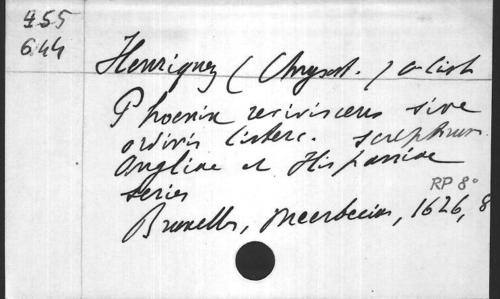 455
644
Henriquez (Chrysost.) o. cist
Phoenix reviviscens sive
ordinis Cisterc. scriptorum
Angliae et Hispaniae
series
RP 8°
Bruxelles, Meerbecius, 1626, 8